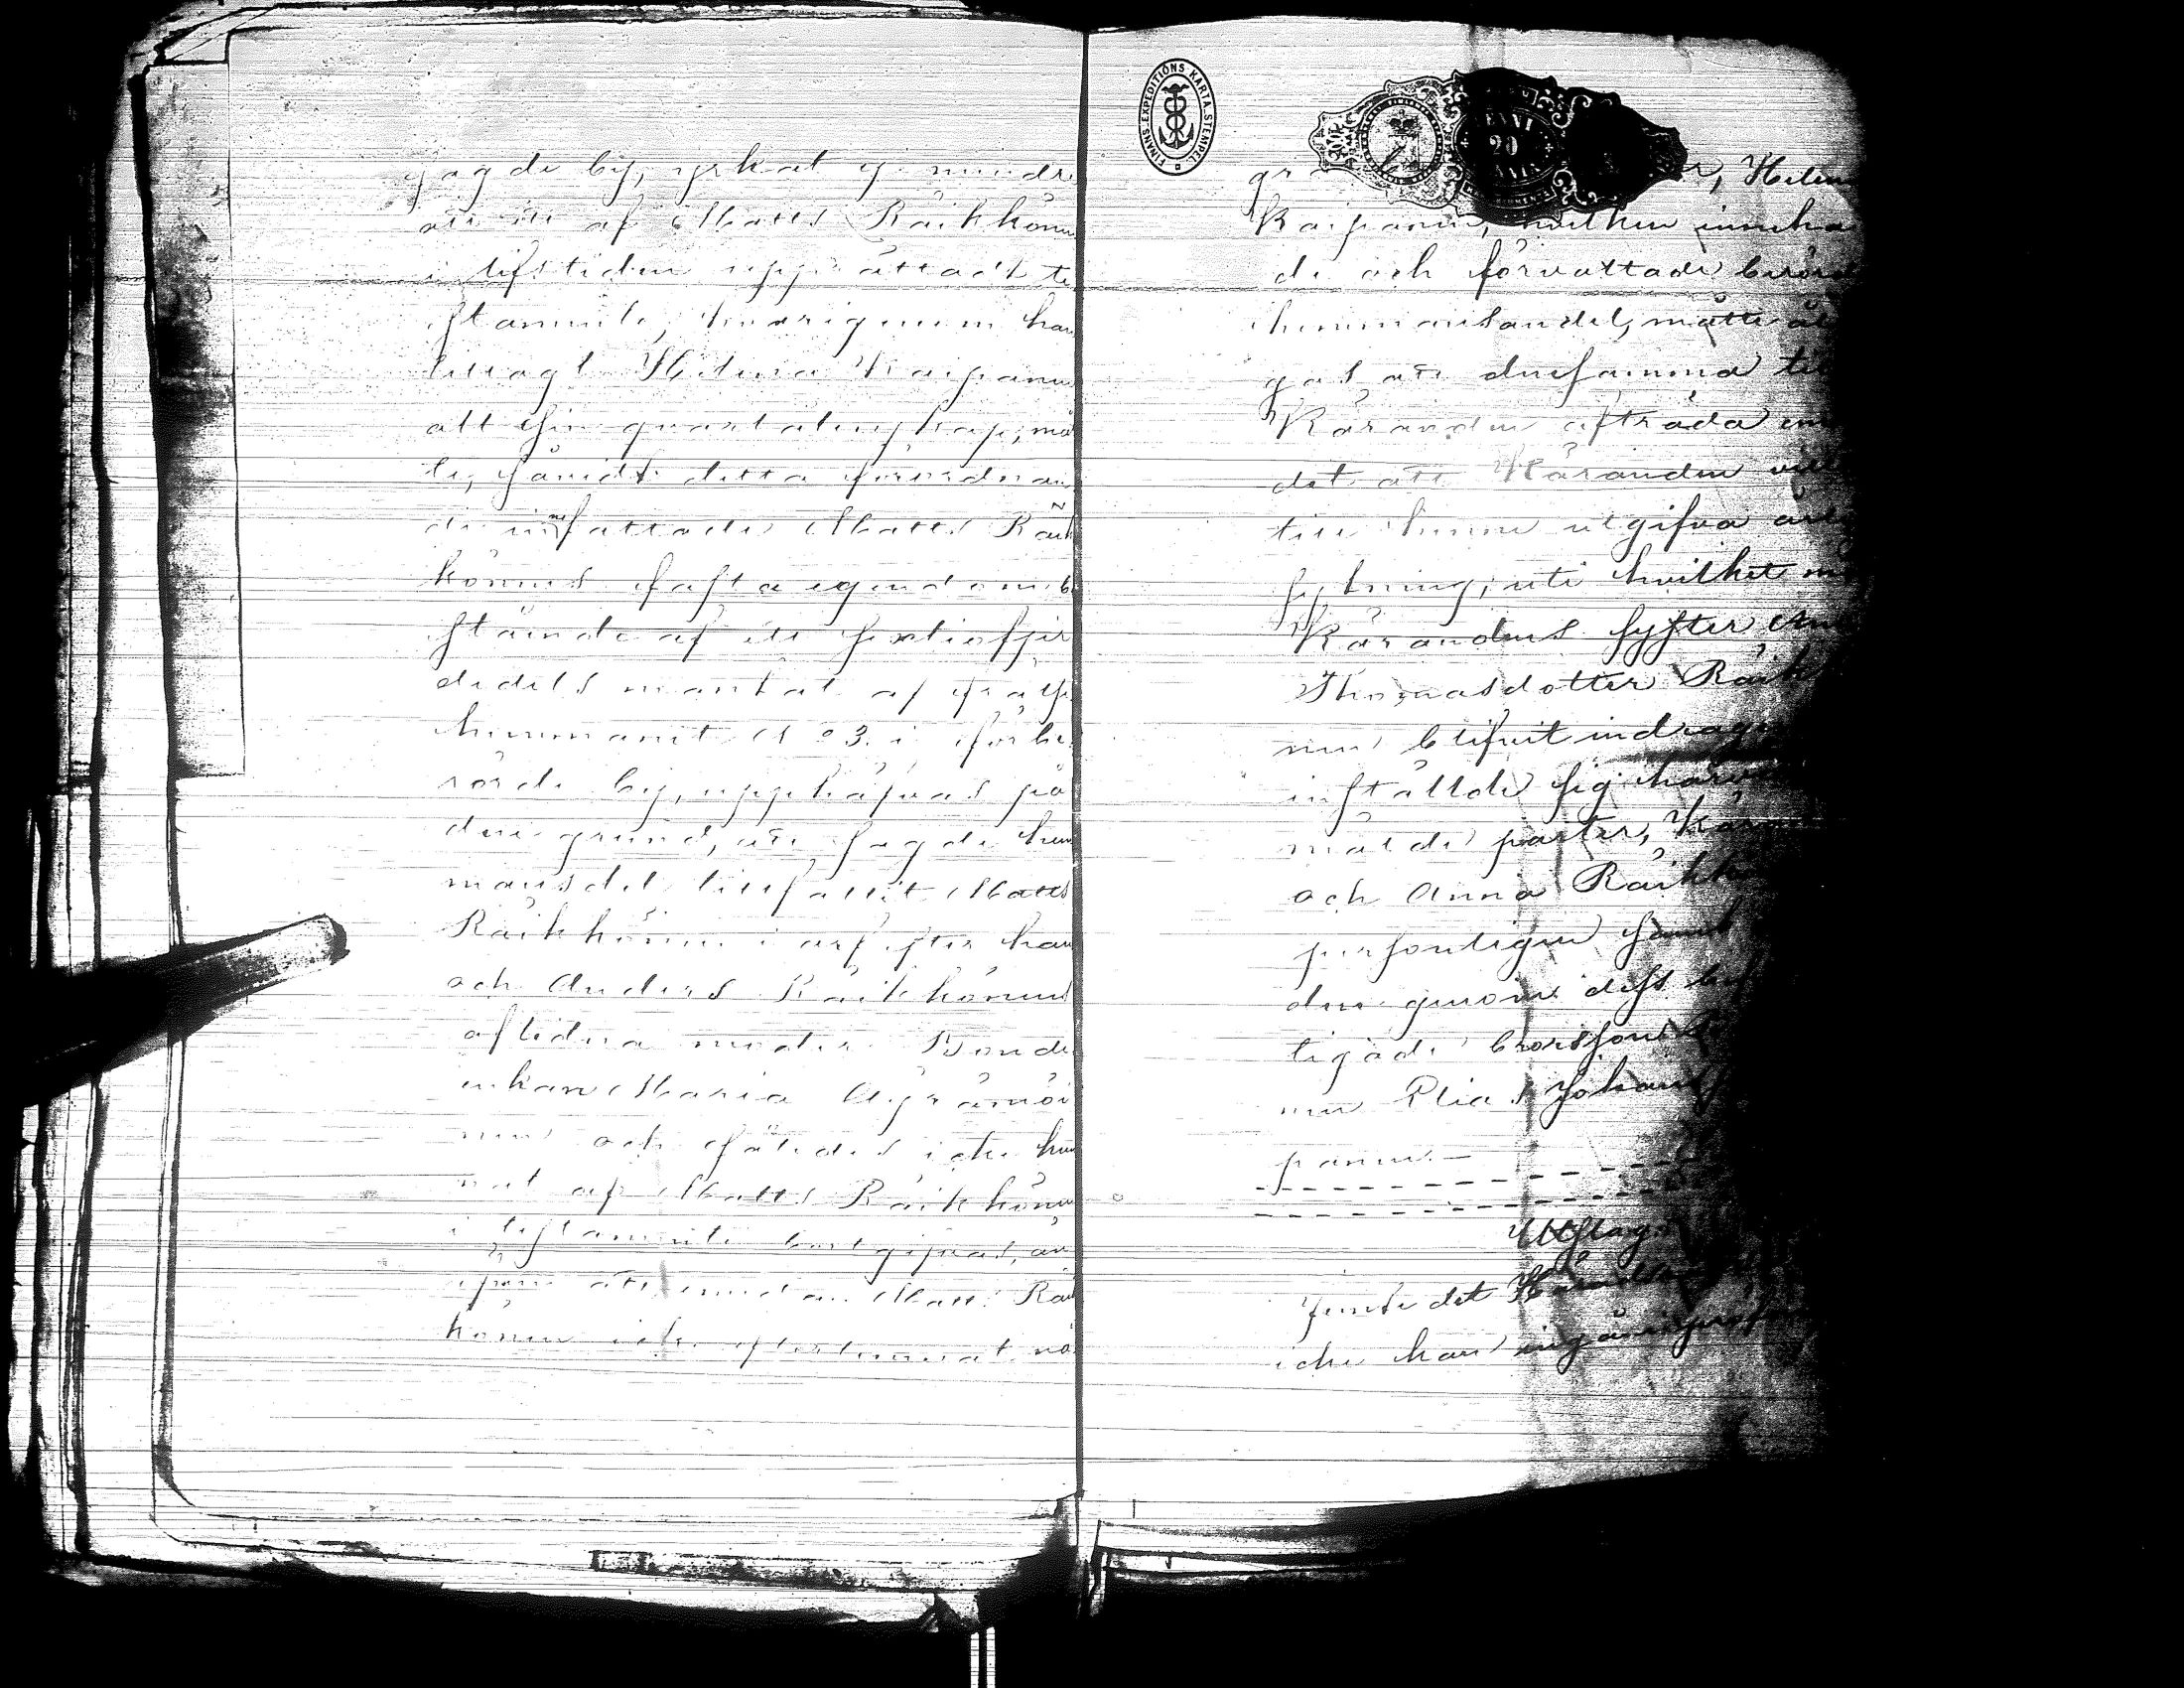 sagde by, yrkat ej mindre
att ett af Matts Räikköne
i lifstiden upprättadt te
stamente, hvarigenom han
tillagt Helena Kaipane
all sin qvarlåtenskap, må
te, såvidt detta förordnan
de innefattade Matts Räik
könens fasta egendom, be
stående af ett sextiofjer
dedels mantal af skatte
hemmanet No 3 i förbe
rörde by, upphäfvas på
den grund, att sagde hem
mansdel tillfallit Matts
Räikkönen i arf efter han
och Anders Räikkönens
aflidna moder Bonde
enkan Maria Äyrämöi
nen och således icke kun
nat af Matts Räikkönen
i testamente bortgifvas, än
äfven att, emedan Matts Räi
könen icke efterlemnat nå
FINANS EXPEDITIONS KARTA STEMPEL
PENNI
20
gra, Helena
Kaipanen, hvilken inneha
de och förvaltade berörde
hemmansandel, måtte åläg
gas att densamma till
Käranden afträda emot
det att Käranden ville
till henne utgifva
sytning; uti hvilket mål
Kärandens syster Anna
Thomasdotter Räikkö
nen blifvit indragen
inställde sig härvid
mälde parter, Käranden
och Anna Räikkönen
personligen samt
den genom dess
tigade brorson
nen Elias Johansson
panen. —
Utslag:
Jemte det Häradsrätten
icke kan ingå